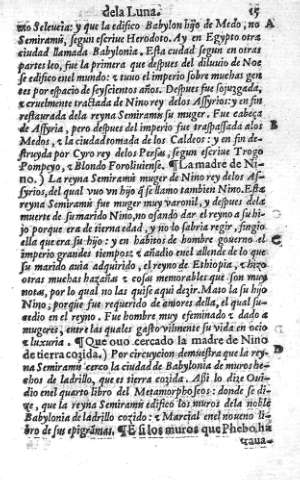 dela Luna. 15
mo Seleucia: y que la edifico Babylon hijo de Medo, no A
Semiramis, segun escriue Herodoto. Ay en Egypto otra
ciudad llamada Babylonia. Esta ciudad segun en otras
partes leo, fue la primera que despues del diluuio de Noe
se edifico enel mundo: & tuuo el imperio sobre muchas gen
tes por espacio de seyscientos años. Despues fue sojuzgada,
& cruelmente tractada de Nino rey delos Assyrios: y en fin
restaurada dela reyna Semiramis su muger. Fue cabeça
de Assyria, pero despues del imperio fue traspassada alos B
Medos, & la ciudad tomada de los Caldeos: y en fin de-
struyda por Cyro rey delos Persas, segun escriue Trogo
Pompeyo, & Blondo Foroliuiense. ¶ La madre de Ni-
no.) La reyna Semiramis muger de Nino rey delos Assy
syrios, del qual vuo vn hijo q̃ se llamo tambien Nino. Esta
reyna Semiramis fue muger muy varonil, y despues dela
muerte de su marido Nino, no osando dar el reyno a su hi-
jo porque era de tierna edad, y no lo sabria regir, fingio
ella que era su hijo: y en habitos de hombre gouerno el C
imperio grandes tiempos: & añadio enel allende de lo que
su marido auia adquirido, el reyno de Ethiopia, & hizo
otras muchas hazañas & cosas memorables que son muy
notas, por lo qual no las quise aqui dezir. Mato la su hijo
Nino, porque fue requerido de amores della, el qual su-
cedio en el reyno. Fue hombre muy efeminado & dado a
mugeres, entre las quales gasto vilmente su vida en ocio
& luxuria. ¶ Que ouo cercado la madre de Nino
de tierra cozida.) Por circuycion demuestra que la rey- D
na Semiramis cerco la ciudad de Babylonia de muros he-
chos de ladrillo, que es tierra cozida. Assi lo dize Oui-
dio enel quarto libro del Metamorphoseos: donde se di-
ze, que la reyna Semiramis edifico los muros dela noble
Babylonia de ladrillo cozido: & Marcial enel noueno li-
bro de sus epigrãmas. ¶ E si los muros que Phebo, ha
traua-